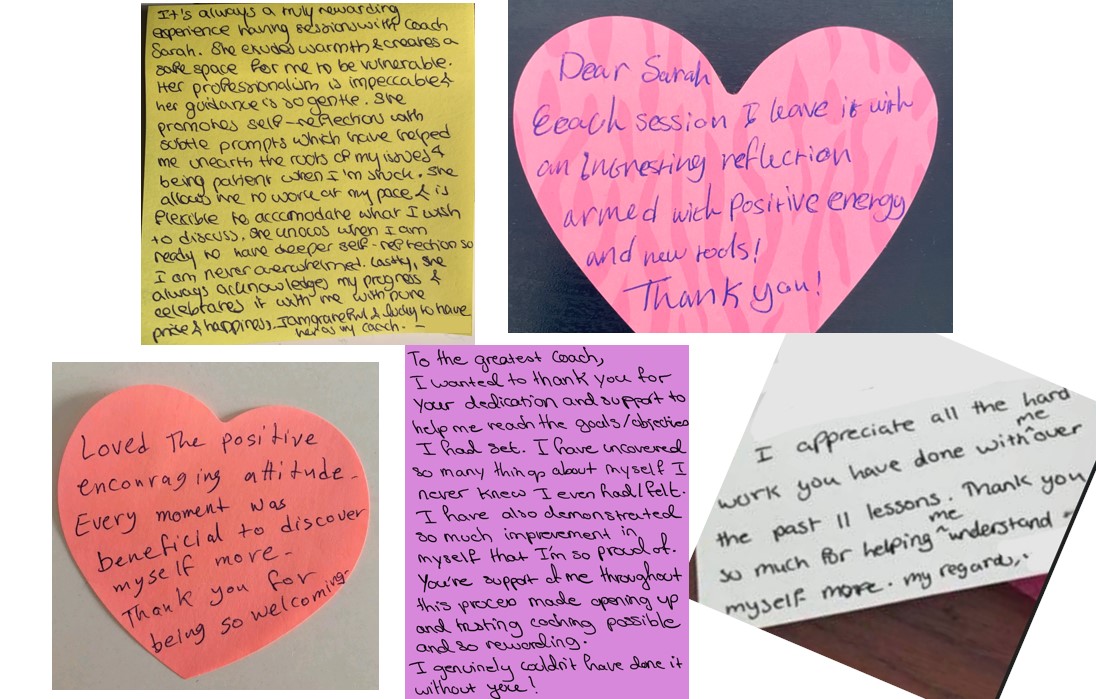 It's always a truly rewarding
experience having sessions with Coach
Sarah. She exudes warmth & creates a
safe space for me to be vulnerable.
Her professionalism is impeccable &
her guidance is so gentle. She
promotes self-reflection with
subtle prompts which have helped
me unearth the roots of my issues &
being patient when I'm stuck. She
allows me to work at my pace & is
flexible to accomodate what I wish
to discuss. She knows when I am
ready to have deeper self-reflection so
I am never overwhelmed. Lastly, she
always acknowledges my progress &
celebrates it with me with pure
pride & happiness. I am grateful & lucky to have
her as my coach. -
Dear Sarah
Eeach session I leave it with
an Interesting reflection
armed with Positive energy
and new tools!
Thank you!
Loved The positive
encouraging attitude.
Every moment was
beneficial to discover
myself more-
Thank you for
being so welcoming-
To the greatest Coach,
I wanted to thank you for
your dedication and support to
help me reach the goals/objectives
I had set. I have uncovered
so many things about myself I
never knew I even had/felt.
I have also demonstrated
so much improvement in
myself that I'm so proud of.
You're support of me throughout
this process made opening up
and trusting coching possible
and so rewarding.
I genuinely couldn't have done it
without you!
I appreciate all the hard
work you have done with me over
the past 11 lessons. Thank you
so much for helping me understand
myself more. my regards,